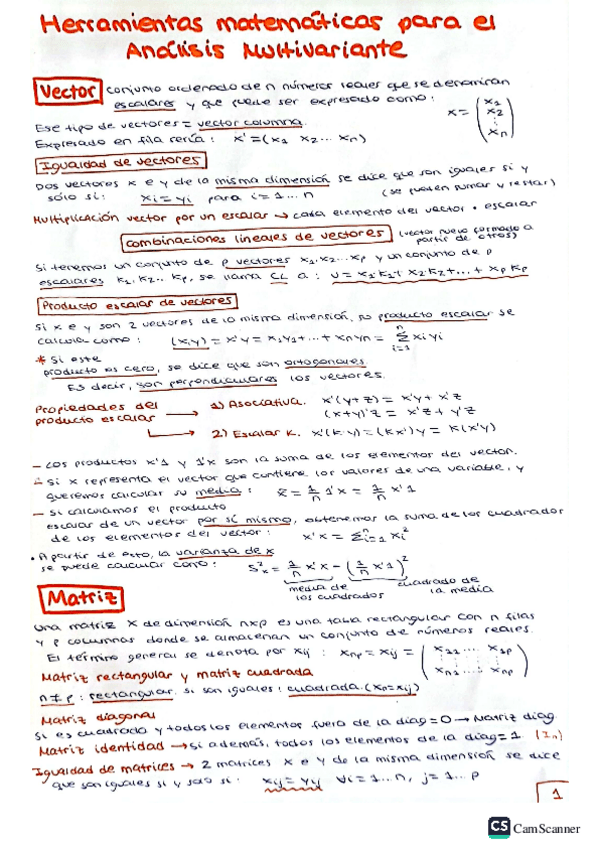 Herramientas matemáticas para el
Análisis Multivariante
Vector conjunto ordenado de n números reales que se denominan
escalares y que puede ser expresado como: x = (x1 x2 ⋮ xn)
Ese tipo de vectores = vector columna.
Expresado en fila sería: x' = (x1 x2 ... xn)
Igualdad de vectores
Dos vectores x e y de la misma dimensión se dice que son iguales si y
sólo si: xi = yi para i = 1 ... n (se pueden sumar y restar)
Multiplicación vector por un escalar → cada elemento del vector • escalar
Combinaciones lineales de vectores (vector nuevo formado a
partir de otros)
Si tenemos un conjunto de p vectores x1, x2 ... xp y un conjunto de p
escalares k1, k2 .. kp, se llama CL a: v = x1k1 + x2k2 + ... + xp kp
Producto escalar de vectores
Si x e y son 2 vectores de la misma dimensión, su producto escalar se
calcula como: (x,y) = x'y = x1y1 + ... + xnyn = Σ xiyi
n
i=1
* Si este
producto es cero, se dice que son ortogonales
Es decir, son perpendiculares los vectores.
Propiedades del
producto escalar → 1) Asociativa. x'(y+z) = x'y + x'z
(x+y)'z = x'z + y'z
→ 2) Escalar k. x'(k·y) = (kx')y = k(x'y)
- Los productos x'1 y 1'x son la suma de los elementos del vector.
- Si x representa el vector que contiene los valores de una variable, y
queremos calcular su media: x̄ = 1/n 1'x = 1/n x'1
- Si calculamos el producto
escalar de un vector por sí mismo, obtenemos la suma de los cuadrados
de los elementos del vector: x'x = Σⁿi=1 xi²
• A partir de esto, la varianza de x
se puede calcular como: S²x = 1/n x'x - (1/n x'1)²
media de los cuadrados
cuadrado de la media
Matriz
Una matriz X de dimensión nxp es una tabla rectangular con n filas
y p columnas donde se almacenan un conjunto de números reales.
El término general se denota por xij: xnp = xij = (x11 ... x1p ⋮ xn1 ... xnp)
Matriz rectangular y matriz cuadrada
n ≠ p: rectangular. si son iguales: cuadrada. (xn=xij)
Matriz diagonal
Si es cuadrado y todos los elementos fuera de la diag = 0 → Matriz diag.
Matriz identidad → si además, todos los elementos de la diag = 1 (In)
Igualdad de matrices → 2 matrices x e y de la misma dimensión se dice
que son iguales si y solo si: xij = yij ∀i = 1 ... n, j = 1 ... p
1
CS CamScanner